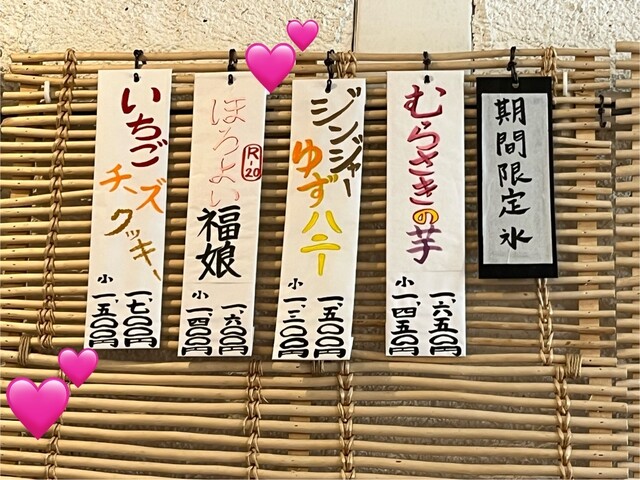 期間限定氷
むらさきの芋
一、六五〇円
小
一、四五〇円
ジンジャー
ゆずハニー
一、五〇〇円
小
一、三〇〇円
ほろよい
R-20
福娘
一、六〇〇円
小
一、四〇〇円
いちご
チーズ
クッキー
一、七〇〇円
小
一、五〇〇円